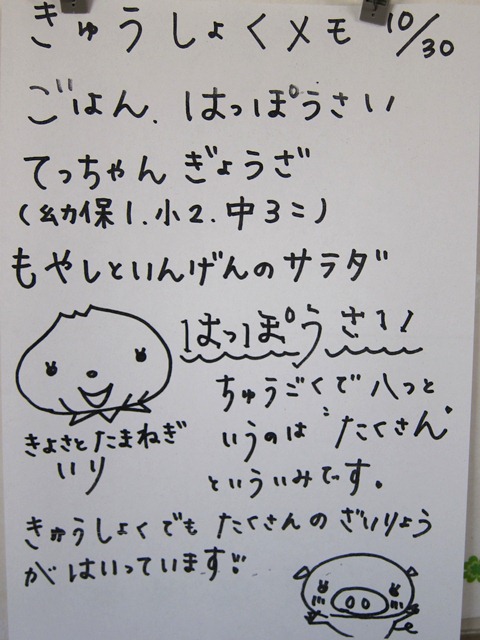 きゅうしょくメモ 10/30
ごはん．はっぽうさい
てっちゃん ぎょうざ
(幼保1．小2．中3こ)
もやしといんげんのサラダ
はっぽうさい
ちゅうごくで 八っと
いうのは "たくさん"
といういみです。
きよさとたまねぎ
いり
きゅうしょくでも たくさんの ざいりょう
が はいっています!!